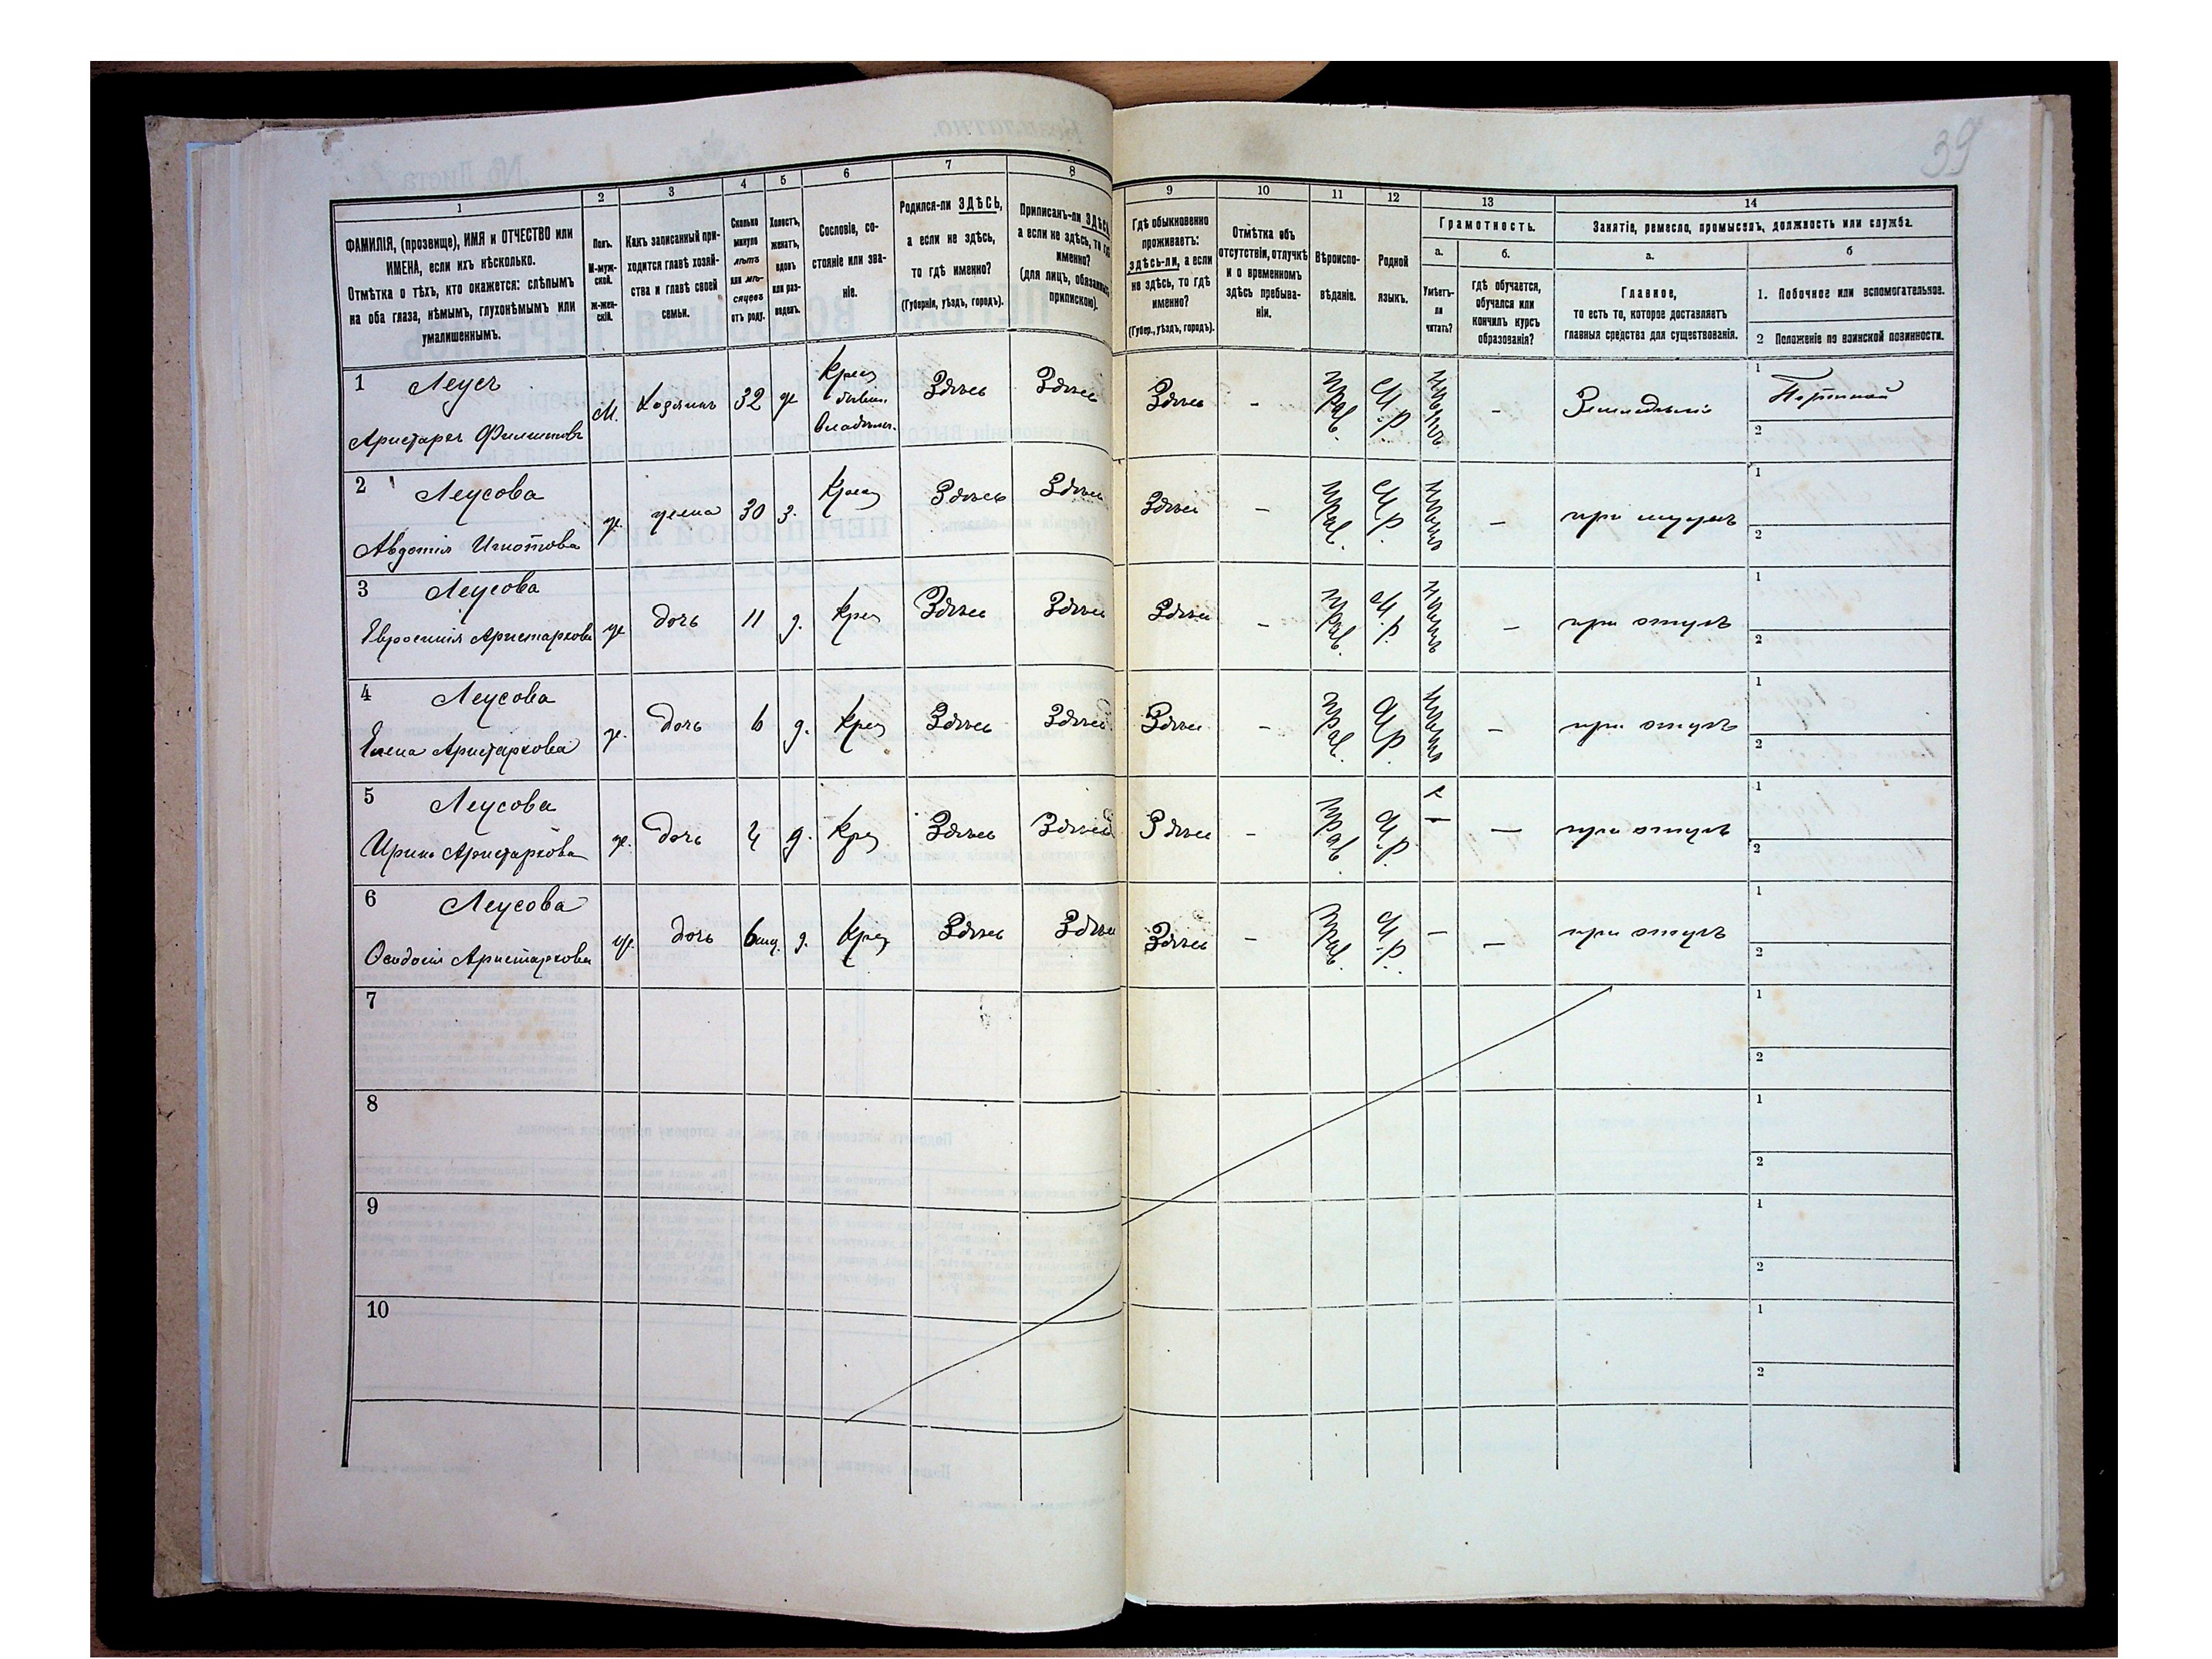 39
1
ФАМИЛІЯ, (прозвище), ИМЯ и ОТЧЕСТВО или
ИМЕНА, если ихъ нѣсколько.
Отмѣтка о тѣхъ, кто окажется: слѣпымъ
на оба глаза, нѣмымъ, глухонѣмымъ или
умалишеннымъ.
2
Полъ.
М-муж-
ской.
Ж-жен-
скій.
3
Какъ записанный при-
ходится главѣ хозяй-
ства и главѣ своей
семьи.
4
Сколько
минуло
лѣтъ
или мѣ-
сяцевъ
отъ роду.
5
Холостъ,
женатъ,
вдовъ
или раз-
веденъ.
6
Сословіе, со-
стояніе или зва-
ніе.
7
Родился-ли ЗДѢСЬ,
а если не здѣсь,
то гдѣ именно?
(Губернія, уѣздъ, городъ).
8
Приписанъ-ли ЗДѢСЬ,
а если не здѣсь, то гдѣ
именно?
(для лицъ, обязанныхъ
припискою).
9
Гдѣ обыкновенно
проживаетъ:
здѣсь-ли, а если
не здѣсь, то гдѣ
именно?
(Губер., уѣздъ, городъ).
10
Отмѣтка объ
отсутствіи, отлучкѣ
и о временномъ
здѣсь пребыва-
ніи.
11
Вѣроиспо-
вѣданіе.
12
Родной
языкъ.
13
Грамотность.
а.
Умѣетъ-
ли
читать?
б.
гдѣ обучается,
обучался или
кончилъ курсъ
образованія?
14
Занятіе, ремесло, промыселъ, должность или служба.
а.
Главное,
то есть то, которое доставляетъ
главныя средства для существованія.
б
1. Побочное или вспомогательное.
2 Положеніе по воинской повинности.
1 Леусъ
Аристархъ Филиповъ
М. Хозяинъ 32 ж Крес
бывш.
Владѣльч.
Здѣсь Здѣсь Здѣсь - прав. М.р. -
Земледѣліе
1 Портной
2
2 Леусова
Авдотія Игнатова
ж. жена 30 з. Крес Здѣсь Здѣсь Здѣсь - прав. М.р. - при мужѣ
1
2
3 Леусова
Евросинія Аристархова
ж дочь 11 д. Крес Здѣсь Здѣсь Здѣсь - прав. М.р. - при отцѣ
1
2
4 Леусова
Елена Аристархова
ж. дочь 6 д. Крес Здѣсь Здѣсь Здѣсь - прав. М.р. - при отцѣ
1
2
5 Леусова
Ирина Аристархова
ж. дочь 4 д. Крес Здѣсь Здѣсь Здѣсь - прав. М.р. - при отцѣ
1
2
6 Леусова
Осодосія Аристархова
ж. дочь 6 мц. д. Крес Здѣсь Здѣсь Здѣсь - прав. М.р. - - при отцѣ
1
2
7
1
2
8
1
2
9
1
2
10
1
2